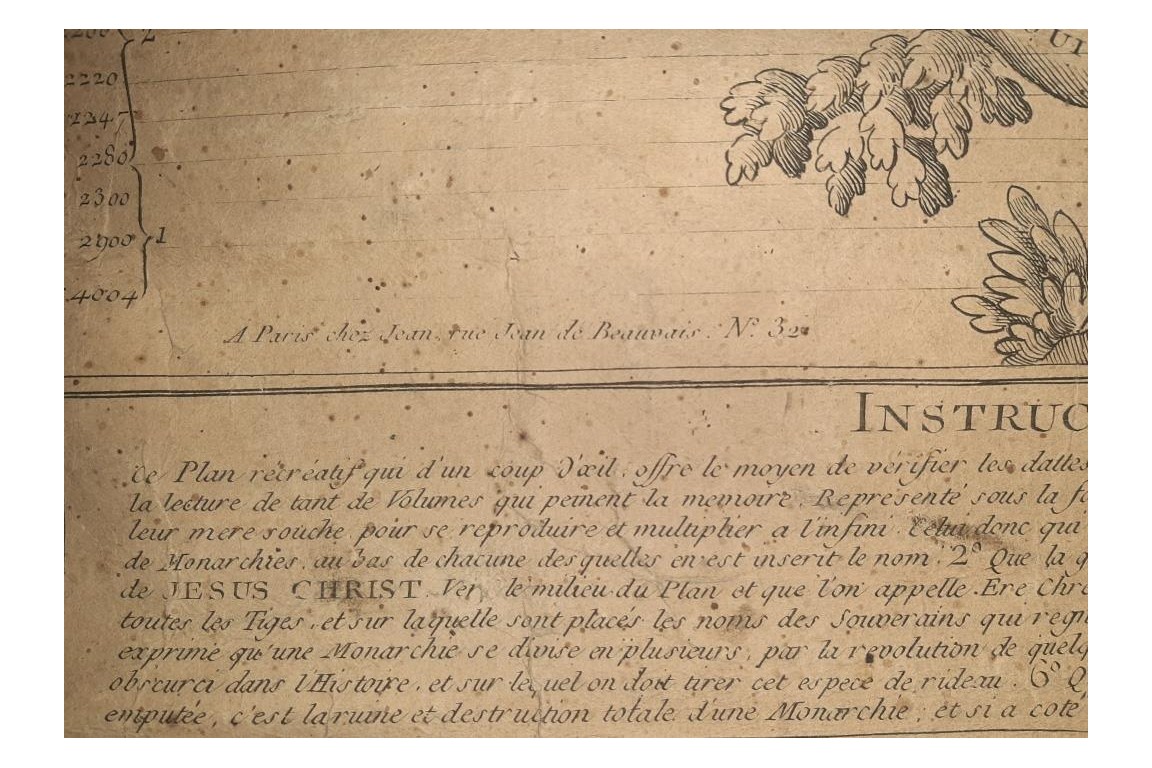 2
2220
2247
2280
2300
2900 1
4004
A Paris chez Jean, rue Jean de Beauvais. N.º 32.
INSTRUC
Ce Plan récréatif qui d'un coup d'œil, offre le moyen de vérifier les dattes
la lecture de tant de Volumes qui peinent la memoire. Représenté sous la fo
leur mere souche pour se reproduire et multiplier a l'infini. Celui donc qui
de Monarchies, au bas de chacune des quelles en est inserit le nom. 2º Que la q
de JESUS CHRIST. Vers le milieu du Plan et que l'on appelle Ere Chré
toutes les Tiges, et sur laquelle sont placés les noms des Souverains qui regn
exprime qu'une Monarchie se divise en plusieurs, par la revolution de quelq
obscurci dans l'Histoire, et sur lequel on doit tirer cet espece de rideau. 6º Q
emputée, c'est la ruine et destruction totale d'une Monarchie, et si a coté